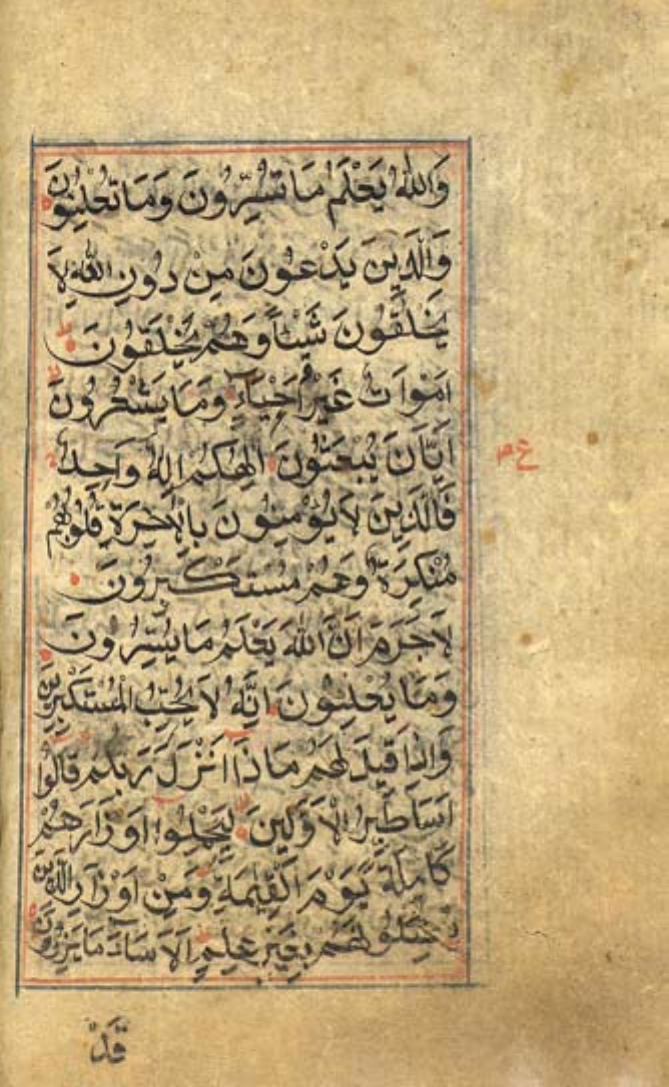 وَاللّٰهُ يَعْلَمُ مَا تُسِرُّونَ وَمَا تُعْلِنُونَ
وَالَّذِينَ يَدْعُونَ مِنْ دُونِ اللّٰهِ لَا
يَخْلُقُونَ شَيْئًا وَهُمْ يُخْلَقُونَ
اَمْوَاتٌ غَيْرُ اَحْيَاءٍ وَمَا يَشْعُرُونَ
اَيَّانَ يُبْعَثُونَ اِلٰهُكُمْ اِلٰهٌ وَاحِدٌ
فَالَّذِينَ لَا يُؤْمِنُونَ بِالْاٰخِرَةِ قُلُوبُهُمْ
مُنْكِرَةٌ وَهُمْ مُسْتَكْبِرُونَ
لَا جَرَمَ اَنَّ اللّٰهَ يَعْلَمُ مَا يُسِرُّونَ
وَمَا يُعْلِنُونَ اِنَّهُ لَا يُحِبُّ الْمُسْتَكْبِرِينَ
وَاِذَا قِيلَ لَهُمْ مَاذَا اَنْزَلَ رَبُّكُمْ قَالُوا
اَسَاطِيرُ الْاَوَّلِينَ لِيَحْمِلُوا اَوْزَارَهُمْ
كَامِلَةً يَوْمَ الْقِيٰمَةِ وَمِنْ اَوْزَارِ الَّذِينَ
يُضِلُّونَهُمْ بِغَيْرِ عِلْمٍ اَلَا سَاءَ مَا يَزِرُونَ
قَدْ